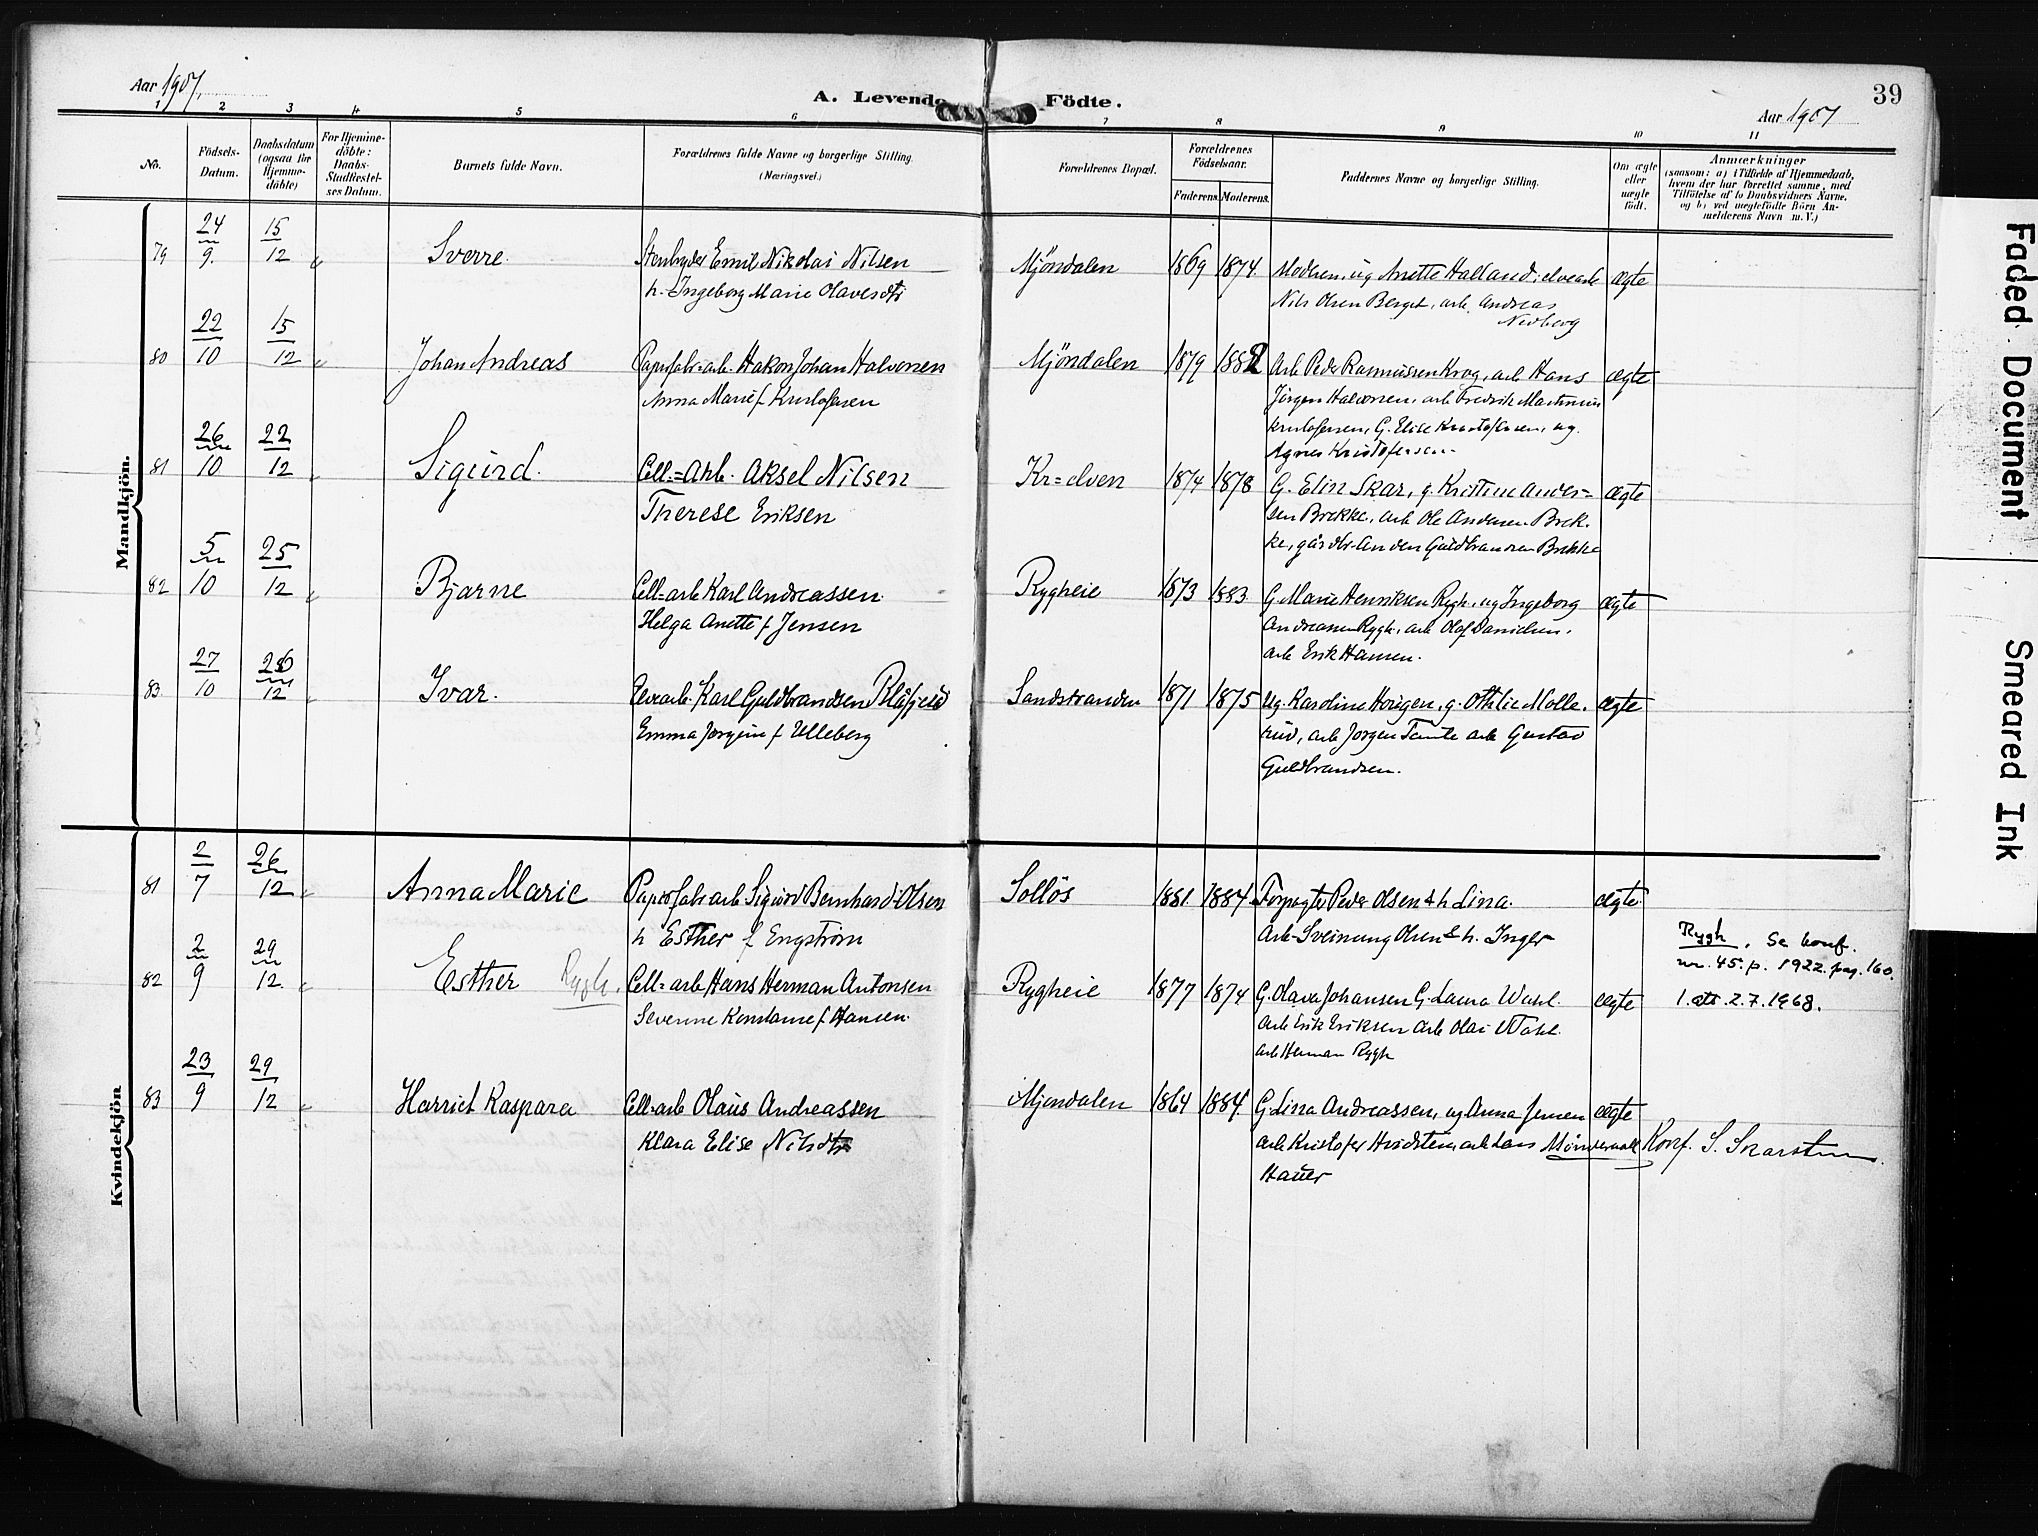 Aar 1907.
A. Levende Födte.
39
Aar 1907
1 2 3 4 5 6 7 8 9 10 11
No.
Födsels-
Datum.
Daabsdatum
(ogsaa for
Hjemme-
döbte)
For Hjemme-
döbte:
Daabs-
Stadfæstel-
ses Datum.
Barnets fulde Navn.
Forældrenes fulde Navne og borgerlige Stilling.
(Næringsvei.)
Forældrenes Bopæl.
Forældrenes
Födselsaar.
Faderens. Moderens.
Faddernes Navne og borgerlige Stilling.
Om ægte
eller
uægte
födt.
Anmærkninger
(saasom: a) i Tilfælde af Hjemmedaab,
hvem der har forrettet samme, med
Tilföielse af to Daabsvidners Navne.
og b) ved uægtefödte Börn An-
melderens Navn m. V.)
Mandkjön.
79 24/9. 15/12 " Sverre. Emil Nikolai Nilsen Mjöndalen 1869 1874. Moderen, ug Anette Halland, elvearb ægte
h. Ingeborg Marie Olavesdtr
Nils Olsen Berget, arb. Andreas
Nedberg
80 22/10 15/12 " Johan Andreas Papirfabr=arb. Hakon Johan Halvorsen Mjöndalen 1879 1882 Arb Peder Rasmussen Krog, arb Hans ægte
Anna Marie f. Kristofersen
Jörgen Halvorsen, arb Fredrik Martinius
Kristofersen, G. Elise Kristofersen, ug.
Agnes Kristofersen.
81 26/10 22/12 " Sigurd. Cell.=Arb. Aksel Nilsen Kr=elven 1874 1878 G. Elin Skar, g. Kristine Ander= ægte
Therese Eriksen
sen Brekke, arb Ole Andersen Brek-
ke, gårdbr Anden Guldbrandsen Brekke
82 5/10 25/12 " Bjarne Cell=arb Karl Andreassen. Rygheie 1873 1883. G. Marie Henriksen Rygh, ug Ingeborg ægte
Helga Anette f. Jensen
Andreassen Rygh, arb Olaf Danielsen.
arb Erik Hansen.
83. 27/10 26/12 " Ivar. Elvearb. Karl Guldbrandsen Blåfjeld Sandstranden 1871 1875 Ug. Karoline Horgen, g. Othilie Molle- ægte
Emma Jorgine f. Ulleberg
rud, arb Jorgen Tamte arb Gustav
Guldbrandsen.
Kvindekjön
81 2/7 26/12 " Anna Marie Papirfabr arb Sigurd Bernhard Olsen Sollös 1881. 1884. Forpagter Peder Olsen & h Lina. ægte
h Esther f Engström
Arb- Sveinung Olsen & h. Inger
82 2/9 29/12. " Esther Rygh. Cell=arb Hans Herman Antonsen Rygheie 1877 1874 G. Olava Johansen G. Laura Wahl. ægte
Severine Konstanse f. Hansen.
Arb Erik Eriksen arb Olai Wahl.
arb Herman Rygh
Rygh. Se konf.
nr. 45. p. 1922. pag. 160.
1. att. 2.7.1968.
83 23/9 29/12 " Harriet Kaspara Cell=arb Olaus Andreassen Mjøndalen 1864 1884. G. Lina Andreassen, ug Anna Jensen ægte
Klara Elise Nilsdtr
arb Kristofer arb Lars
Hauer
Konf. S. Skarstun
Faded Document Smeared Ink